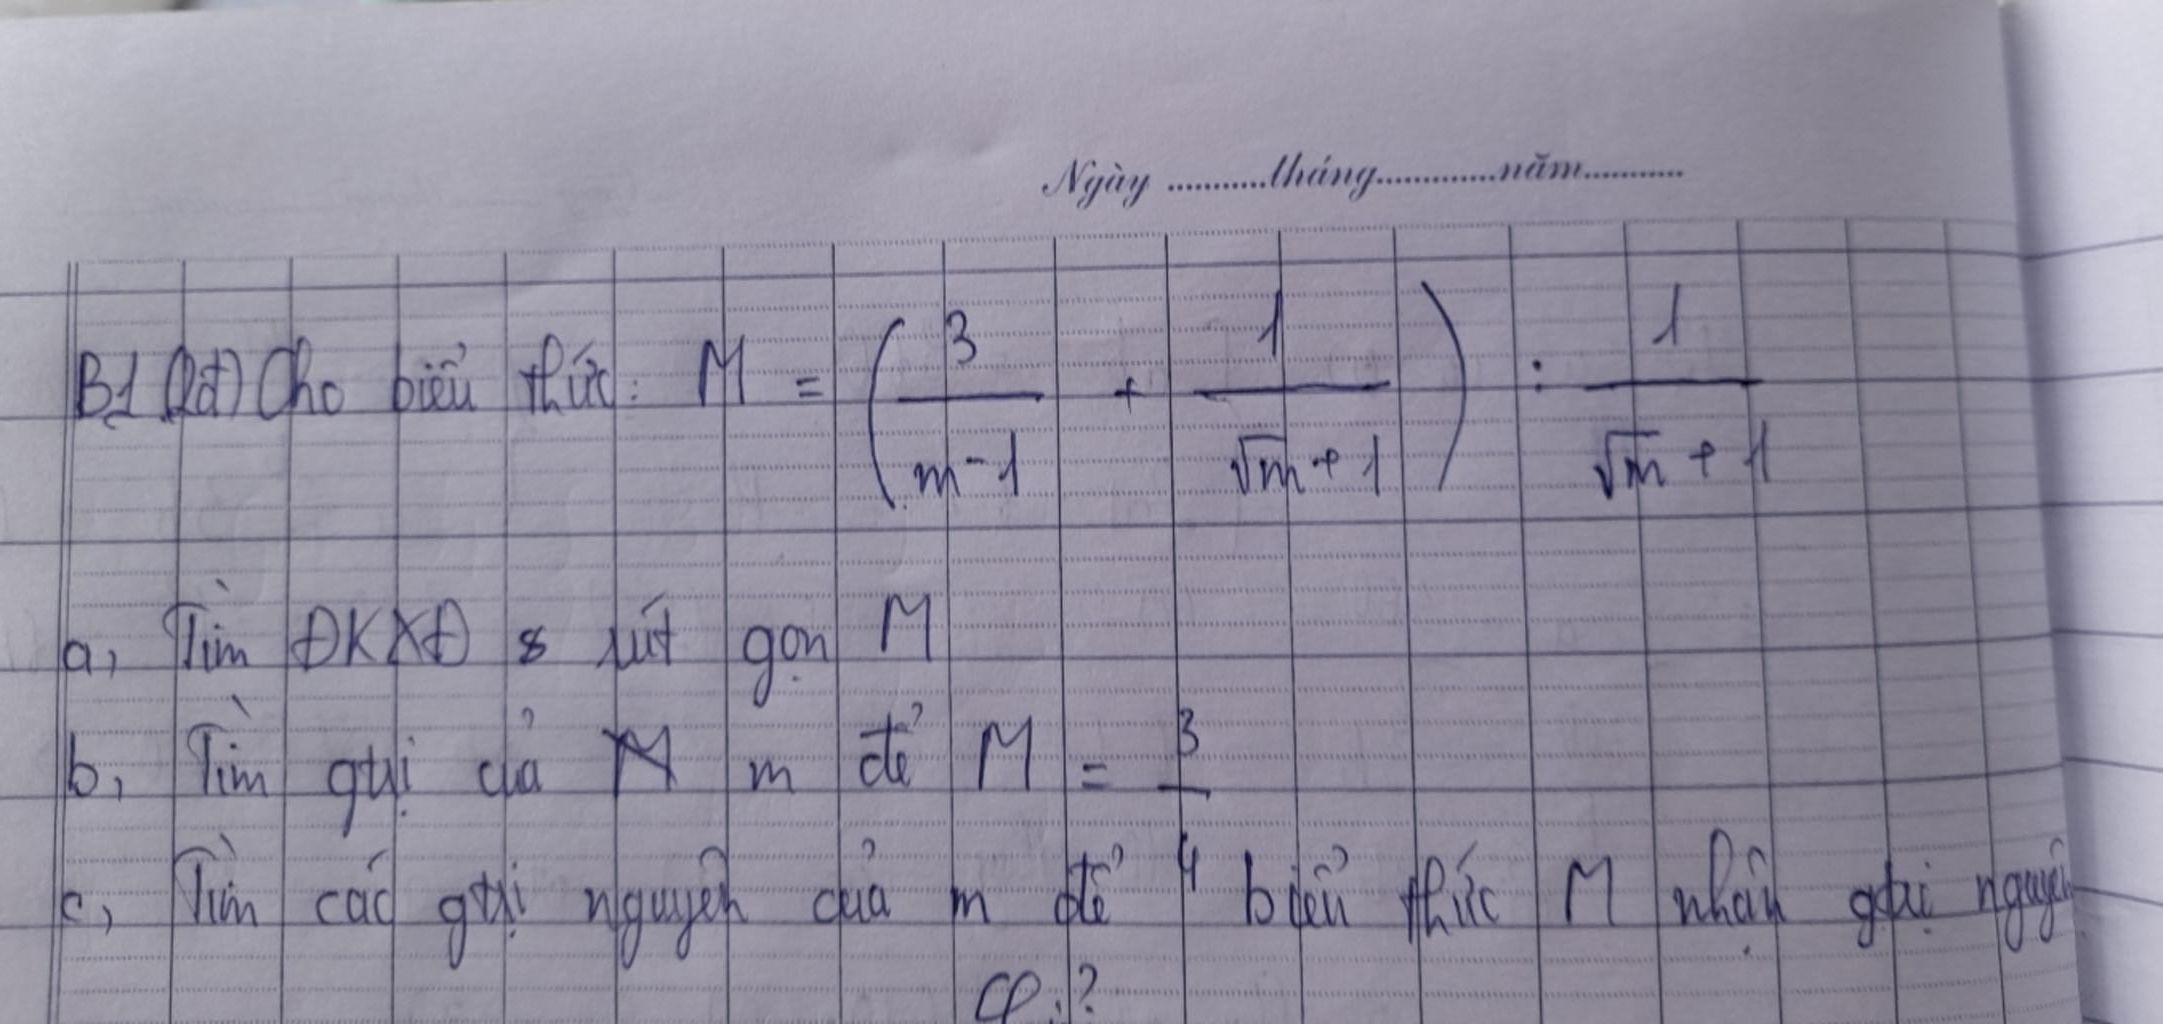 Ngày ...........tháng.............năm...........
B1 (2đ) Cho biểu thức: M = ( 3/(m-1) + 1/(√m+1) ) : 1/(√m+1)
a, Tìm ĐKXĐ & rút gọn M
b, Tìm gtrị của m để M = 3/4
c, Tìm các gtrị nguyên của m để biểu thức M nhận gtrị nguyên